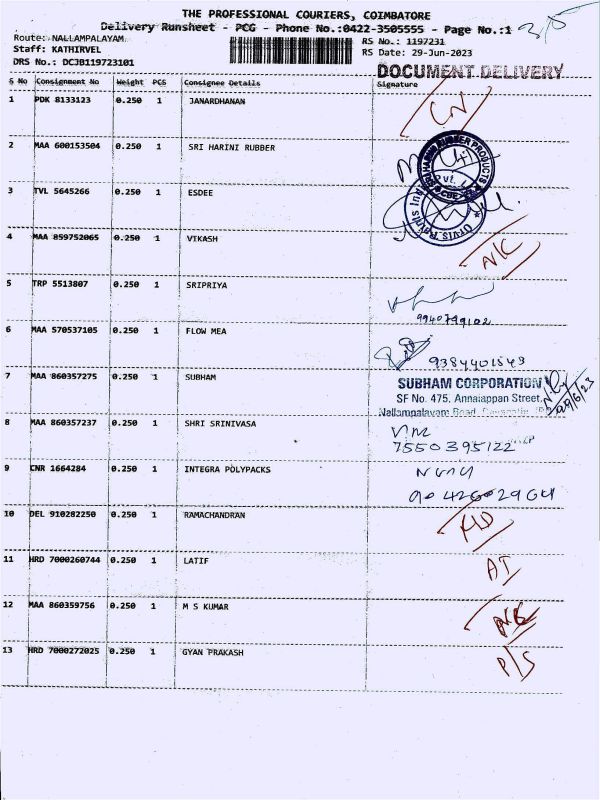 THE PROFESSIONAL COURIERS, COIMBATORE
Delivery Runsheet - PCG - Phone No.:0422-3505555 - Page No.:1
Route: NALLAMPALAYAM RS No.: 1197231
Staff: KATHIRVEL RS Date: 29-Jun-2023
DRS No.: DCJB119723101 DOCUMENT DELIVERY
S No Consignment No Weight PCS Consignee Details Signature
1 PDK 8133123 0.250 1 JANARDHANAN
2 MAA 600153504 0.250 1 SRI HARINI RUBBER
3 TVL 5645266 0.250 1 ESDEE
4 MAA 859752065 0.250 1 VIKASH
5 TRP 5513807 0.250 1 SRIPRIYA
9940799102
6 MAA 570537105 0.250 1 FLOW MEA
9384401843
7 MAA 860357275 0.250 1 SUBHAM SUBHAM CORPORATION
SF No. 475, Annaiappan Street,
Nallampalayam Road,
8 MAA 860357237 0.250 1 SHRI SRINIVASA
7550395122
9 CNR 1664284 0.250 1 INTEGRA POLYPACKS
10 DEL 910282250 0.250 1 RAMACHANDRAN
11 HRD 7000260744 0.250 1 LATIF AI
12 MAA 860359756 0.250 1 M S KUMAR
13 HRD 7000272025 0.250 1 GYAN PRAKASH P/S